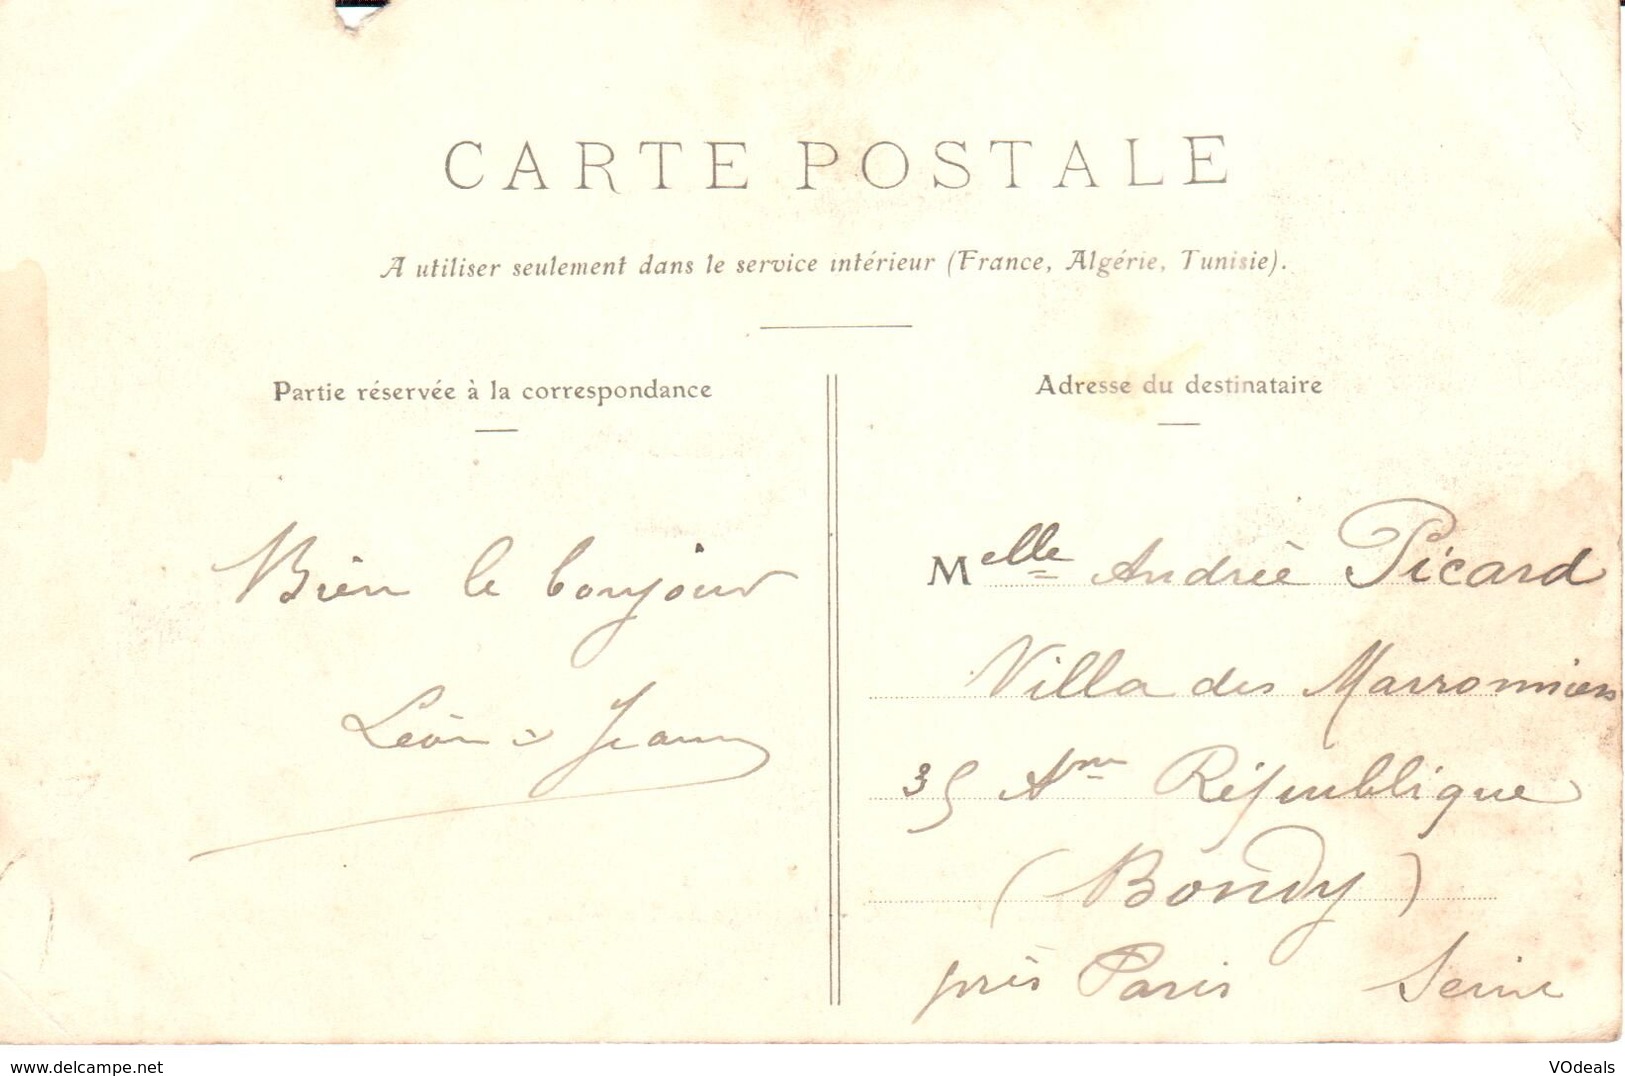 CARTE POSTALE
A utiliser seulement dans le service intérieur (France, Algérie, Tunisie).
Partie réservée à la correspondance
Bien le bonjour
Léon &
Adresse du destinataire
Melle Andrée Picard
Villa des Marronniers
35 République
(Bondy)
près Paris Seine
www.delcampe.net
VOdeals